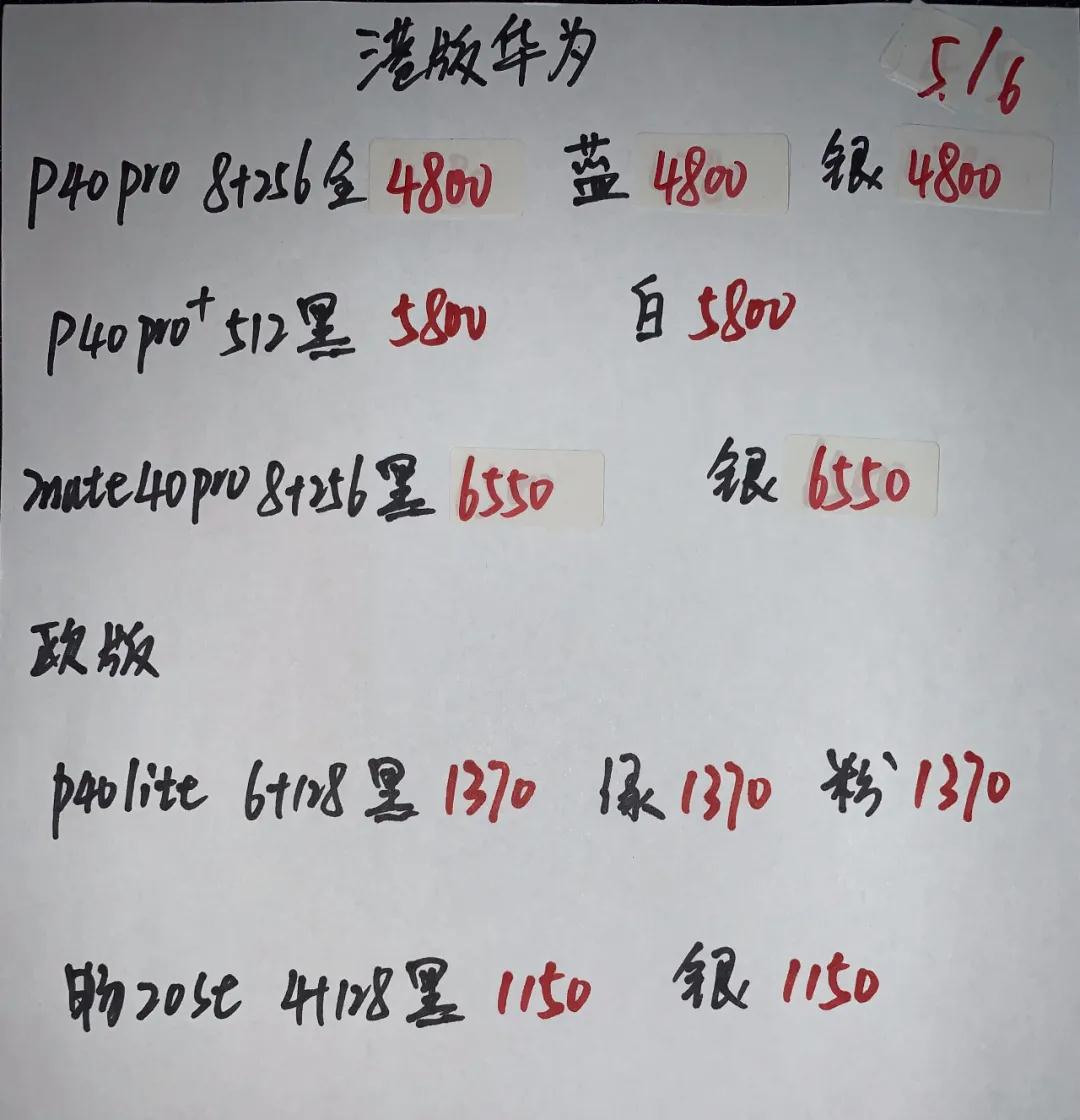 港版华为 5/6
p40pro 8+256金 4800 蓝 4800 银 4800
p40pro+ 512黑 5800 白 5800
mate40pro 8+256黑 6550 银 6550
欧版
p40lite 6+128 黑 1370 绿 1370 粉 1370
畅20se 4+128黑 1150 银 1150